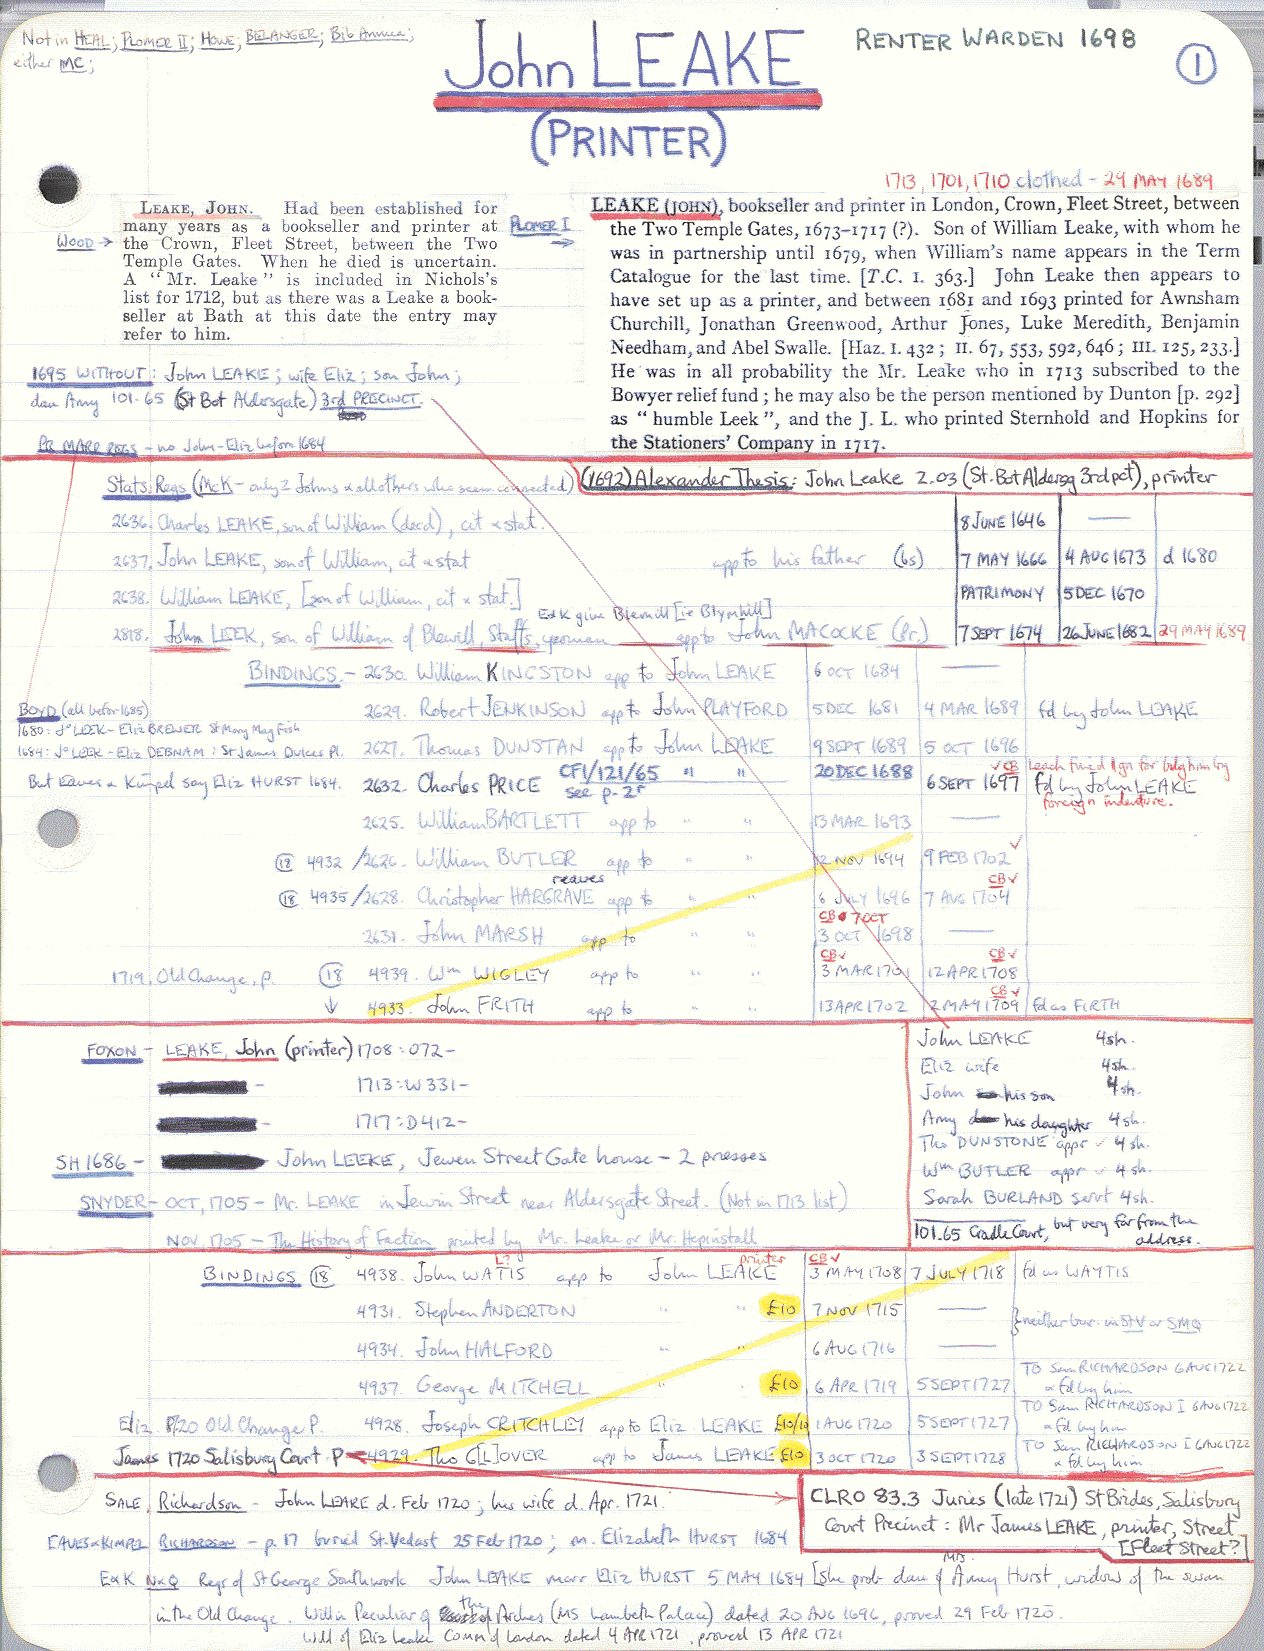 Not in HEAL; PLOMER II; HOWE; BELANGER; Bib Annua;
either MC;
John LEAKE
(PRINTER)
RENTER WARDEN 1698
1
1713, 1701, 1710 clothed - 29 MAY 1689
WOOD →
LEAKE, JOHN. Had been established for
many years as a bookseller and printer at
the Crown, Fleet Street, between the Two
Temple Gates. When he died is uncertain.
A " Mr. Leake " is included in Nichols's
list for 1712, but as there was a Leake a book-
seller at Bath at this date the entry may
refer to him.
PLOMER I →
LEAKE (JOHN), bookseller and printer in London, Crown, Fleet Street, between
the Two Temple Gates, 1673-1717 (?). Son of William Leake, with whom he
was in partnership until 1679, when William's name appears in the Term
Catalogue for the last time. [T.C. I. 363.] John Leake then appears to
have set up as a printer, and between 1681 and 1693 printed for Awnsham
Churchill, Jonathan Greenwood, Arthur Jones, Luke Meredith, Benjamin
Needham, and Abel Swalle. [Haz. I. 432 ; II. 67, 553, 592, 646 ; III. 125, 233.]
He was in all probability the Mr. Leake who in 1713 subscribed to the
Bowyer relief fund ; he may also be the person mentioned by Dunton [p. 292]
as " humble Leek ", and the J. L. who printed Sternhold and Hopkins for
the Stationers' Company in 1717.
1695 WITHOUT: John LEAKE; wife Eliz; son John;
dau Amy 101.65 (St Bot Aldersgate) 3rd PRECINCT.
PR MARR REGS - no John-Eliz before 1684
Stats Regs (McK - only 2 Johns & all others who seem connected)
(1692) Alexander Thesis: John Leake 2.03 (St. Bot Aldersg 3rd pct), printer
2636. Charles LEAKE, son of William (decd), cit & stat. 8 JUNE 1646 —
2637. John LEAKE, son of William, cit & stat app to his father (bs) 7 MAY 1666 4 AUG 1673 d 1680
2638. William LEAKE, [son of William, cit & stat.] PATRIMONY 5 DEC 1670
E&K give Blemill [ie Blymhill]
2898. John LEEK, son of William of Blewill, Staffs, yeoman app to John MACOCKE (Pr.) 7 SEPT 1674 26 JUNE 1682 29 MAY 1689
BINDINGS - 2630. William KINGSTON app to John LEAKE 6 OCT 1684 —
2629. Robert JENKINSON app to John PLAYFORD 5 DEC 1681 4 MAR 1689 fd by John LEAKE
2627. Thomas DUNSTAN app to John LEAKE 9 SEPT 1689 5 OCT 1696
BOYD (all before 1685)
1680: Jo LEEK - Eliz BREWER St Mary Mag Fish
1684: Jo LEEK - Eliz DEBNAM: St James Dukes Pl.
But Eaves & Kimpel say Eliz HURST 1684.
2632. Charles PRICE CF1/121/65 " " 20 DEC 1688 6 SEPT 1697 fd by John LEAKE
see p. 2r
✓ CB Leach fined for bdg him by
foreign indenture.
2625. William BARTLETT app to " " 13 MAR 1693 —
18 4932 / 2626. William BUTLER app to " " 12 NOV 1694 9 FEB 1702 ✓
reaves
18 4935 / 2628. Christopher HARGRAVE app to " " 6 JULY 1696 7 AUG 1704 CB ✓
CB 7 OCT
2631. John MARSH app to " " 3 OCT 1698 —
1719, Old Change, p. 18 4939. Wm WIGLEY app to " " CB ✓ 3 MAR 1701 CB ✓ 12 APR 1708
↓ 4933. John FRITH app to " " 13 APR 1702 CB ✓ 2 MAY 1709 fd as FIRTH
FOXON - LEAKE, John (printer) 1708: 072-
- 1713: W331-
- 1717: D412-
SH 1686 - John LEEKE, Jewen Street Gate house - 2 presses
SNYDER - OCT, 1705 - Mr. LEAKE in Jewin Street near Aldersgate Street. (Not in 1713 list)
NOV. 1705 - The History of Faction printed by Mr. Leake or Mr. Hepinstall
John LEAKE 4sh.
Eliz wife 4sh.
John his son 4sh.
Amy his daughter 4sh.
Tho DUNSTONE appr ✓ 4sh.
Wm BUTLER appr ✓ 4sh.
Sarah BURLAND servt 4sh.
101.65 Cradle Court, but very far from the
address.
BINDINGS 18 4938. John WATTS app to John LEAKE printer CB ✓ 3 MAY 1708 7 JULY 1718 fd as WAYTIS
L?
4931. Stephen ANDERTON " " £10 7 NOV 1715 —
} neither bur. in StV or SMQ
4934. John HALFORD " 6 AUG 1716 —
4937. George MITCHELL " £10 6 APR 1719 5 SEPT 1727 TO Sam RICHARDSON 6 AUG 1722
& fd by him
Eliz P/20 Old Change P. 4928. Joseph CRITCHLEY app to Eliz LEAKE £10/10 1 AUG 1720 5 SEPT 1727 TO Sam RICHARDSON I 6 AUG 1722
& fd by him
James 1720 Salisbury Court P 4929. Tho G[L]OVER app to James LEAKE £10 3 OCT 1720 3 SEPT 1728 TO Sam RICHARDSON I 6 AUG 1722
& fd by him
SALE, Richardson - John LEAKE d. Feb 1720; his wife d. Apr. 1721.
CLRO 83.3 Juries (late 1721) St Brides, Salisbury
Court Precinct: Mr James LEAKE, printer, Street
[Fleet Street?]
EAVES & KIMPEL RICHARDSON - p. 17 buried St. Vedast 25 Feb 1720; m. Elizabeth HURST 1684
E&K N&Q Regs of St George Southwork John LEAKE marr Eliz HURST 5 MAY 1684 [She prob dau of Mrs Amey Hurst, widow of the swan
in the Old Change. Will in Peculiar of the Arches (MS Lambeth Palace) dated 20 AUG 1696, proved 29 Feb 1720.
Will of Eliz Leake Comm of London dated 4 APR 1721, proved 13 APR 1721